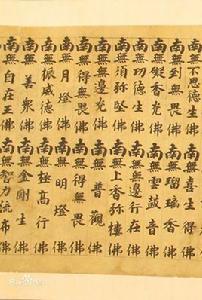 南無不思德生佛 南無喜生得佛
南無到無畏佛 南無瑠璃香佛
南無香光佛 南無雲鼓音佛
南無功德生佛 南無行在佛
南無須弥堅佛 南無上香弥樓佛
南無無邊光佛 南無普觀佛
南無得無畏佛
南無月燈佛 南無明燈佛
南無振威德佛 南無極高行佛
南無美衆佛 南無金剛生佛
南無自在王佛 南無智力流布佛